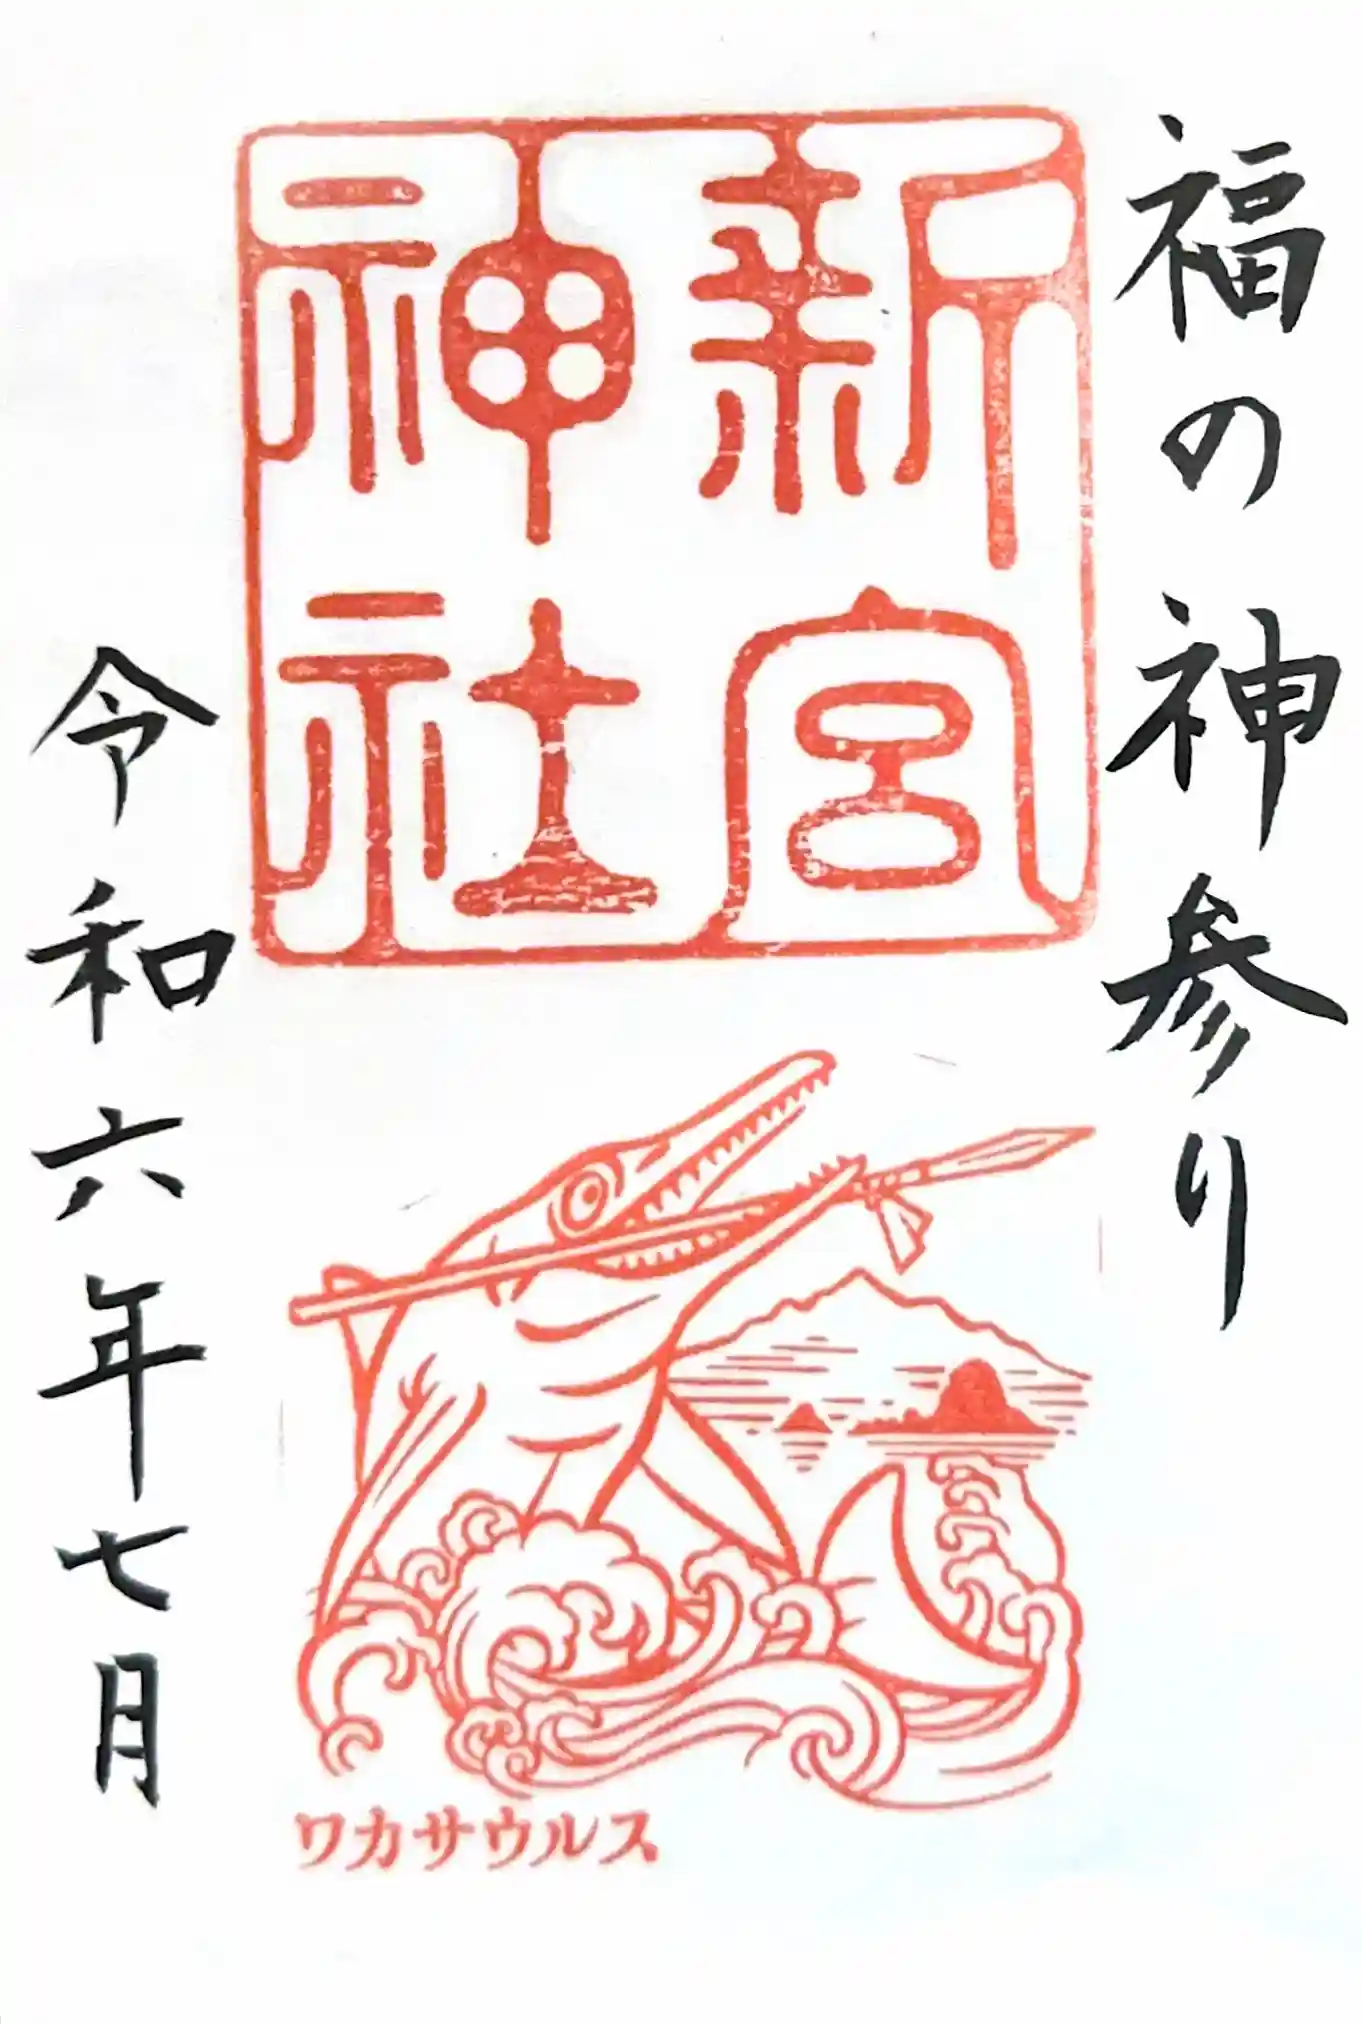 福の神参り
新宮
神社
令和六年七月
ワカサウルス